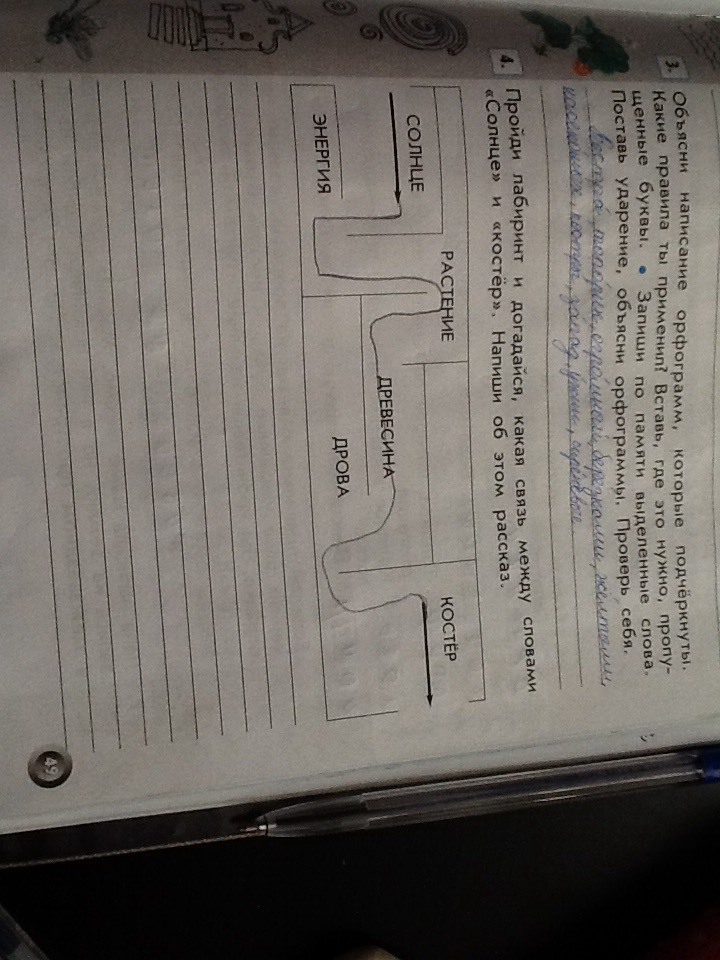 3. Объясни написание орфограмм, которые подчёркнуты.
Какие правила ты применил? Вставь, где это нужно, пропу-
щенные буквы. • Запиши по памяти выделенные слова.
Поставь ударение, объясни орфограммы. Проверь себя.
огромной, берёзками, жёлтыми,
костёр, запад
4. Пройди лабиринт и догадайся, какая связь между словами
«Солнце» и «костёр». Напиши об этом рассказ.
СОЛНЦЕ
РАСТЕНИЕ
КОСТЁР
ЭНЕРГИЯ
ДРЕВЕСИНА
ДРОВА
49